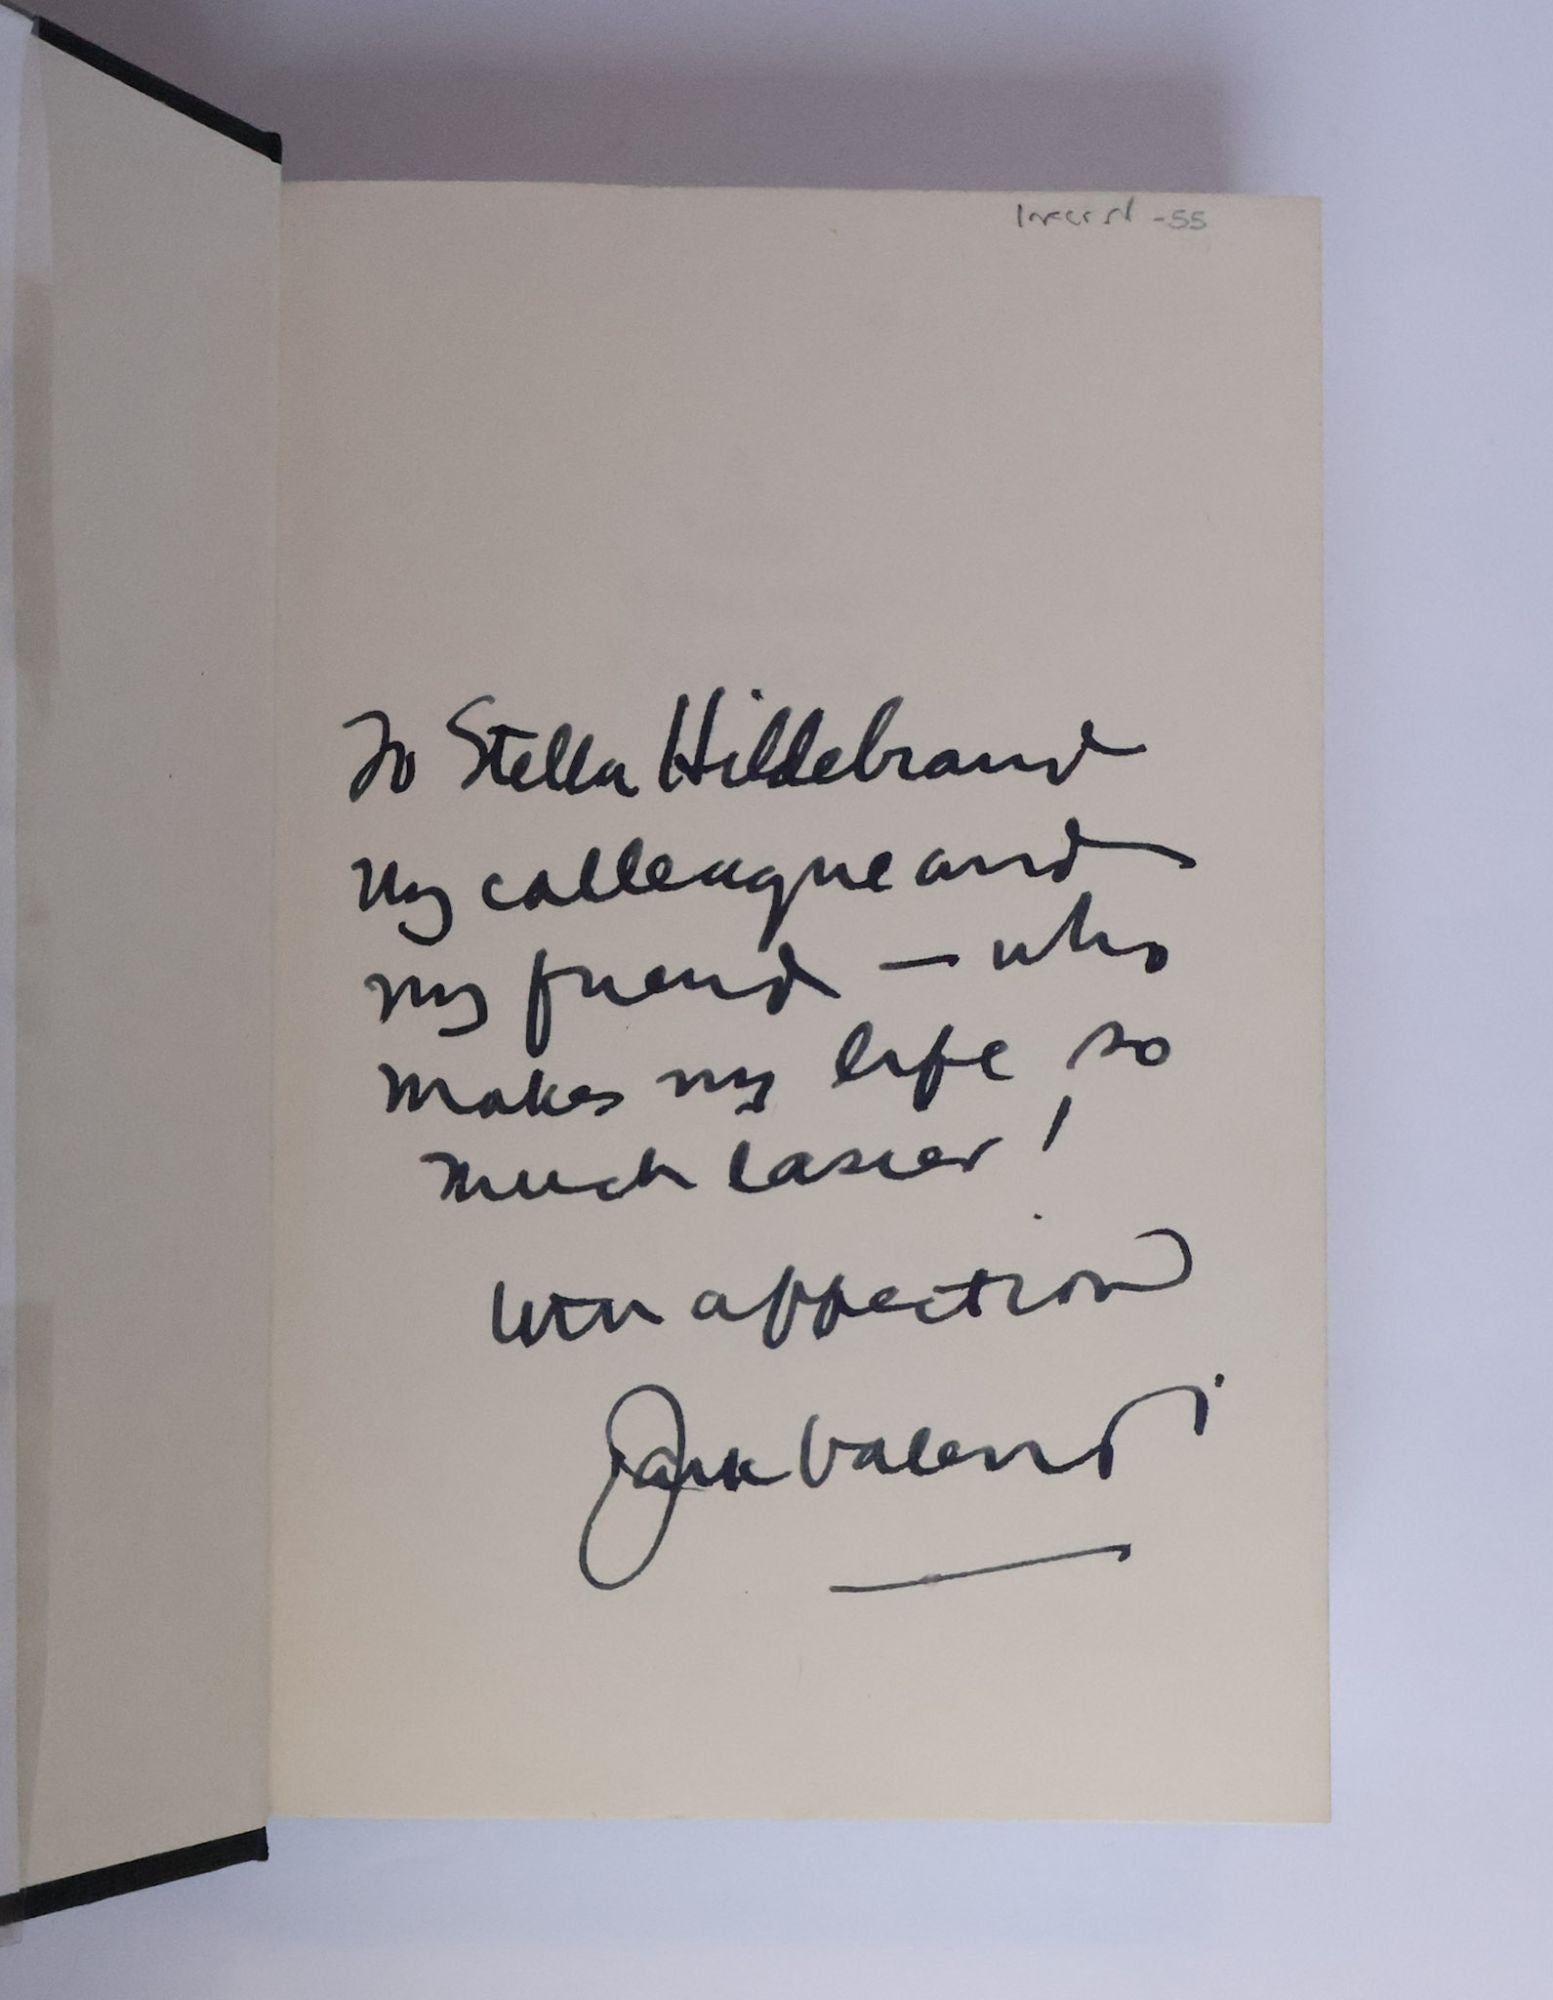 -55
To Stella Hildebrand
My colleague and
my friend — who
makes my life so
much easier!
With affection
Jack Valenti